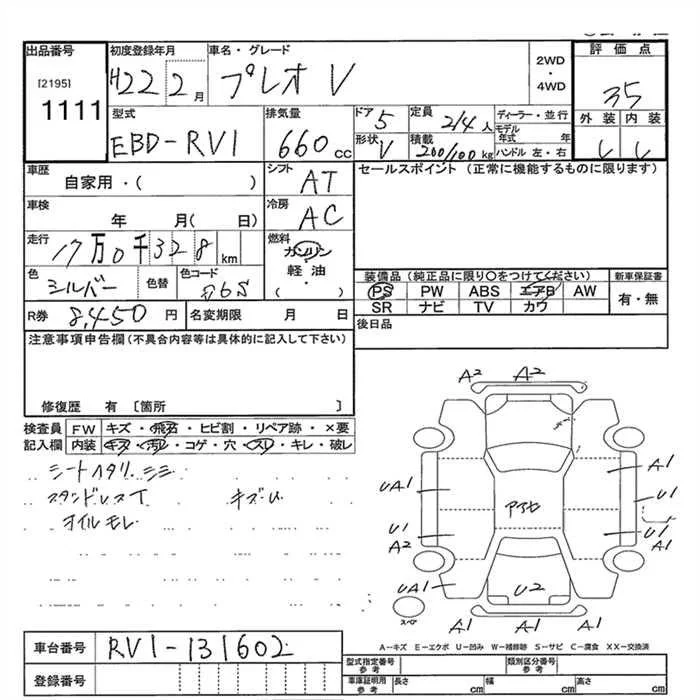 出品番号 初度登録年月 車名・グレード 2WD・4WD 評価点
[2195] 1111 H22 2月 プレオ V 35
型式 排気量 ドア 定員 ディーラー・並行 外装 内装
EBD-RV1 660cc 5 2/4人 モデル年式 年
形状 V 積載 200/100kg ハンドル 左・右
車歴 シフト セールスポイント (正常に機能するものに限ります)
自家用・( ) AT
車検 冷房
年 月( 日) AC
走行 燃料
17万0千328km ガソリン・軽油・( )
色 色替 色コード 装備品 (純正品に限り○をつけてください) 新車保証書
シルバー PS PW ABS エアB AW 有・無
R券 8,450円 名変期限 月 日 SR ナビ TV カワ
注意事項申告欄(不具合内容等は具体的に記入して下さい) 後日品
修復歴 有 〔箇所 〕
検査員記入欄 FW キズ・飛石・ヒビ割・リペア跡・×要
内装 キズ・汚れ・コゲ・穴・スレ・キレ・破レ
オイルモレ
A2 A2
A1
UA1 U1
U1 U1
A2 A1
UA1 U2 A1
スペア A1 A1
A-キズ E-エクボ U-凹み W-補修跡 S-サビ C-腐食 XX-交換済
車台番号 RV1-131602
型式指定番号 参考 類別区分番号 参考
登録番号 車庫証明用 参考 長さ cm 幅 cm 高さ cm